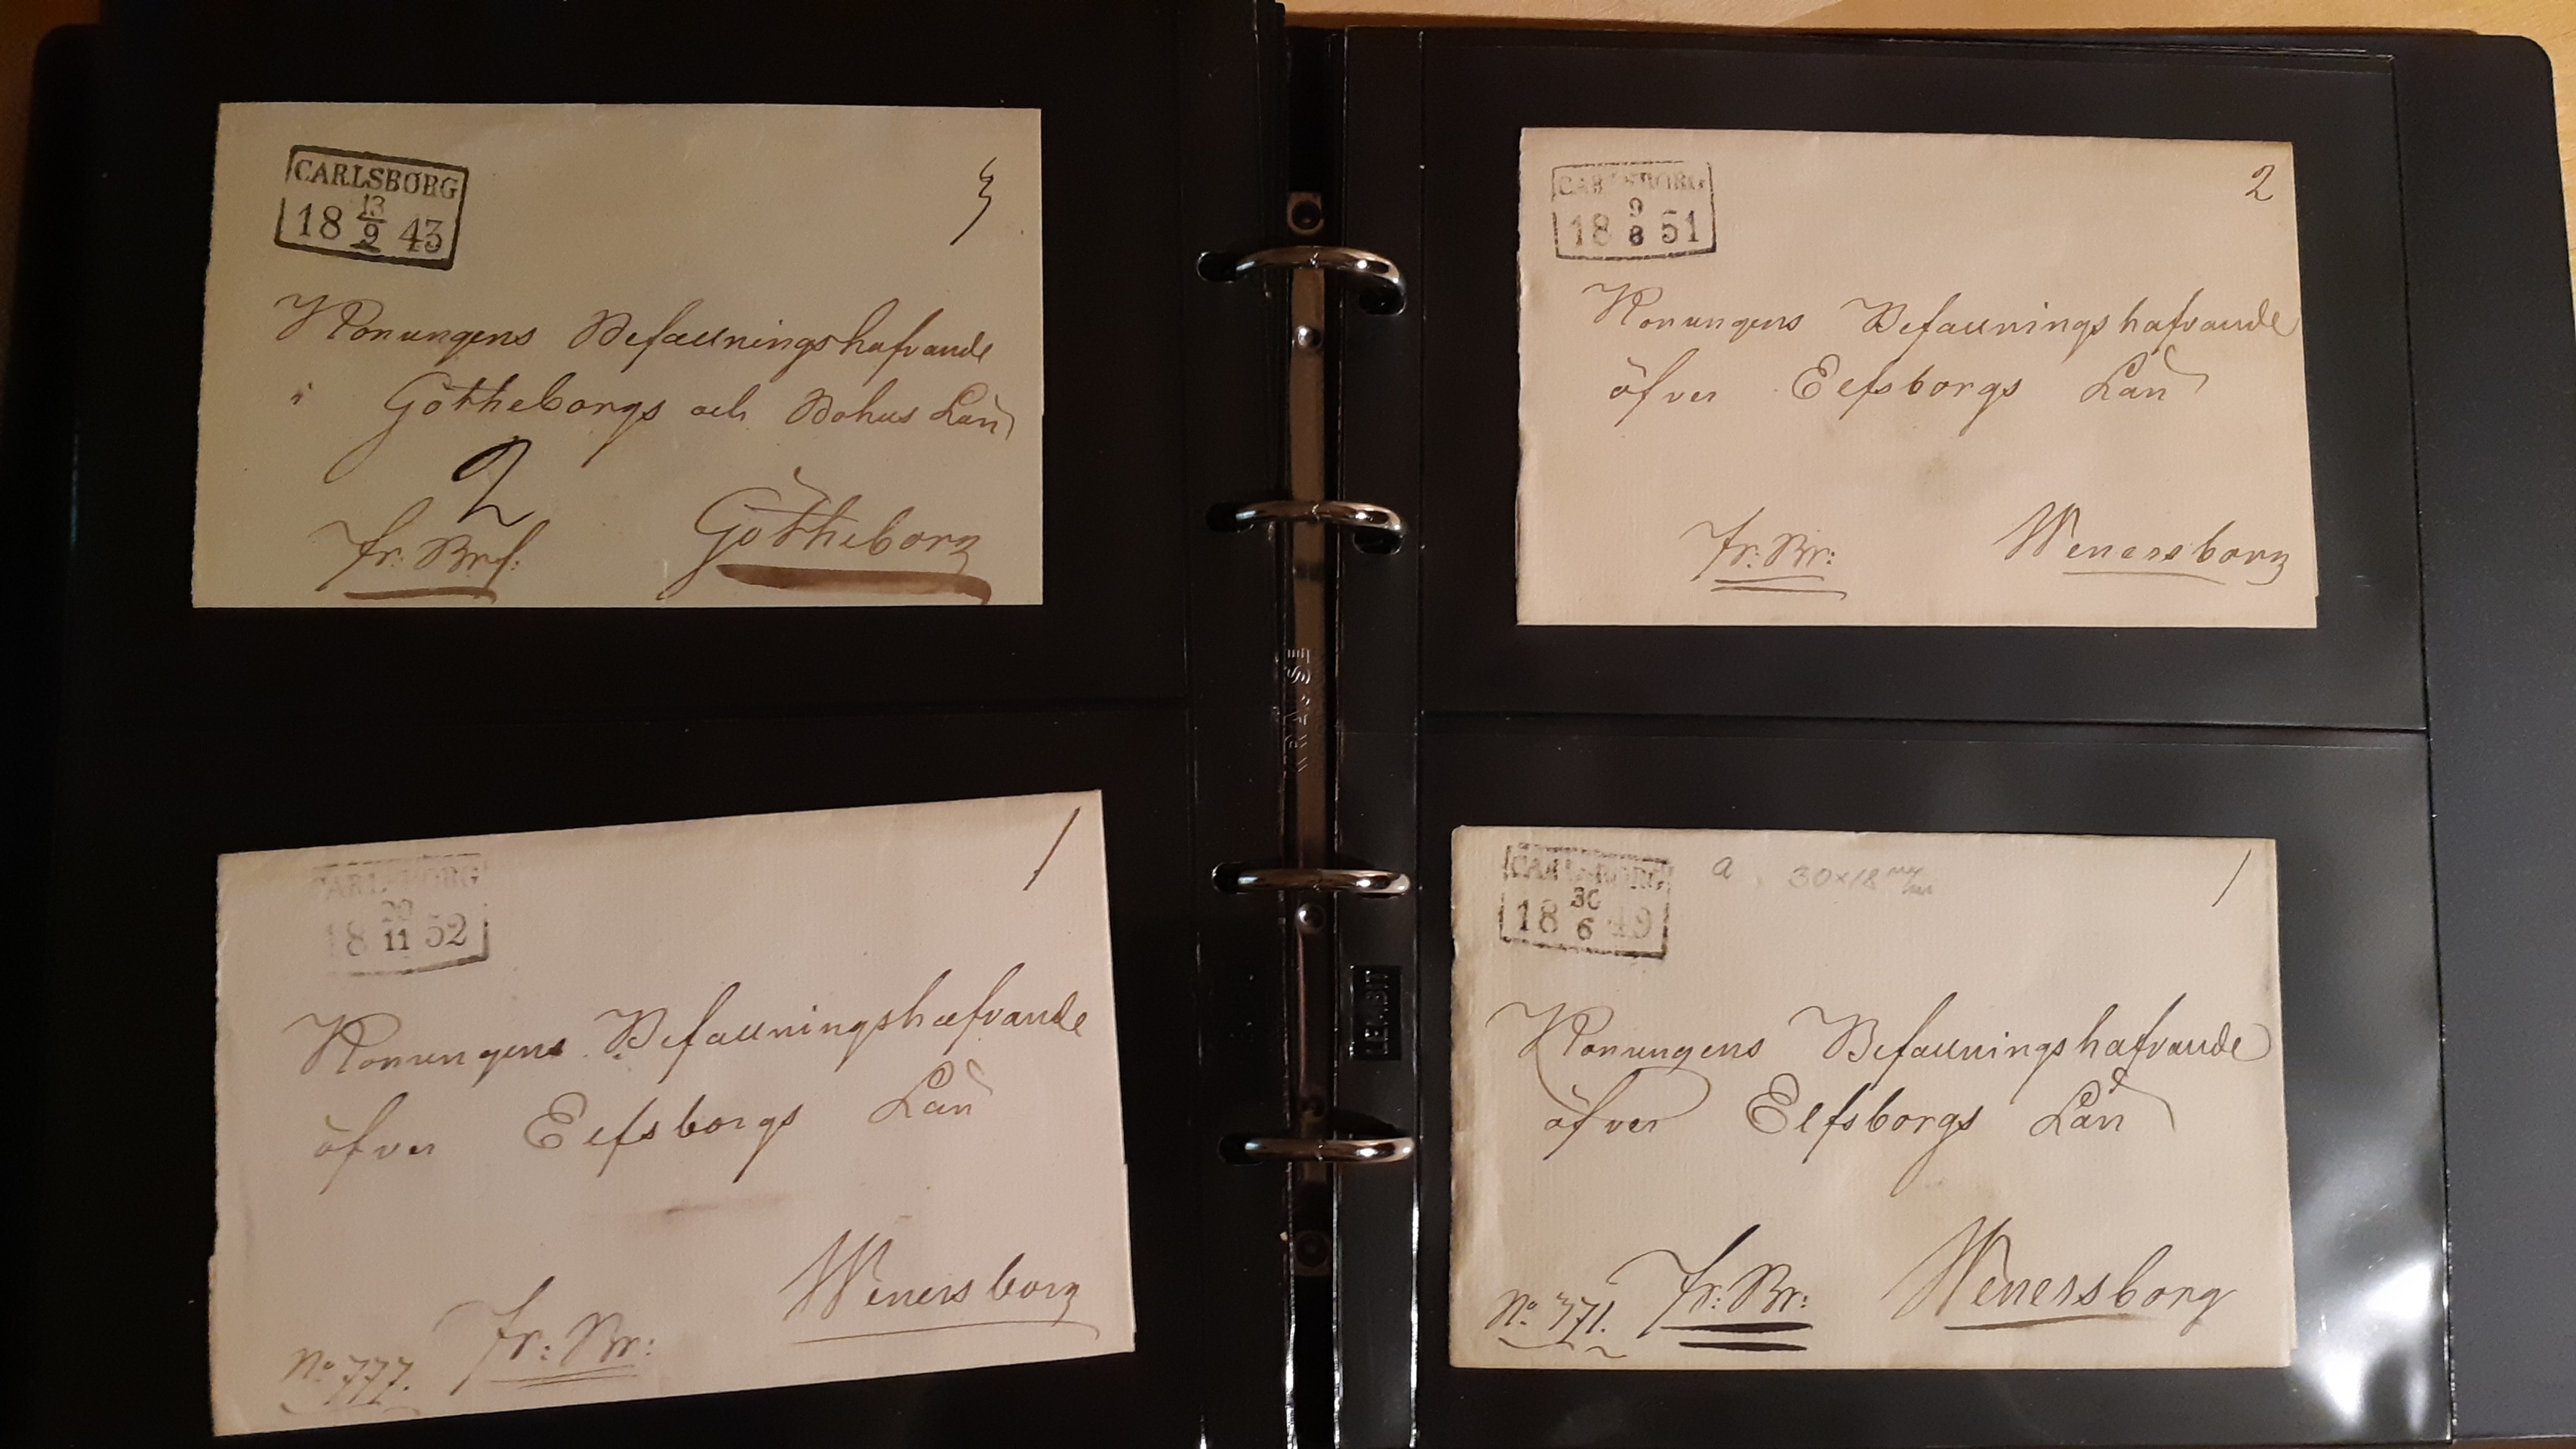 CARLSBORG
18 13/9 43
Konungens Befallningshafvande
i Götheborgs och Bohus Län
2
fr: Brf:
Götheborg
CARLSBORG
18 9/8 51
2
Konungens Befallningshafvande
öfver Elfsborgs Län
fr: Br:
Wenersborg
CARLSBORG
18 20/11 52
1
Konungens Befallningshafvande
öfver Elfsborgs Län
Wenersborg
No 777. fr: Br:
CARLSBORG
18 30/6 49
a 30x18 mm
1
Konungens Befallningshafvande
öfver Elfsborgs Län
No 371. fr: Br: Wenersborg